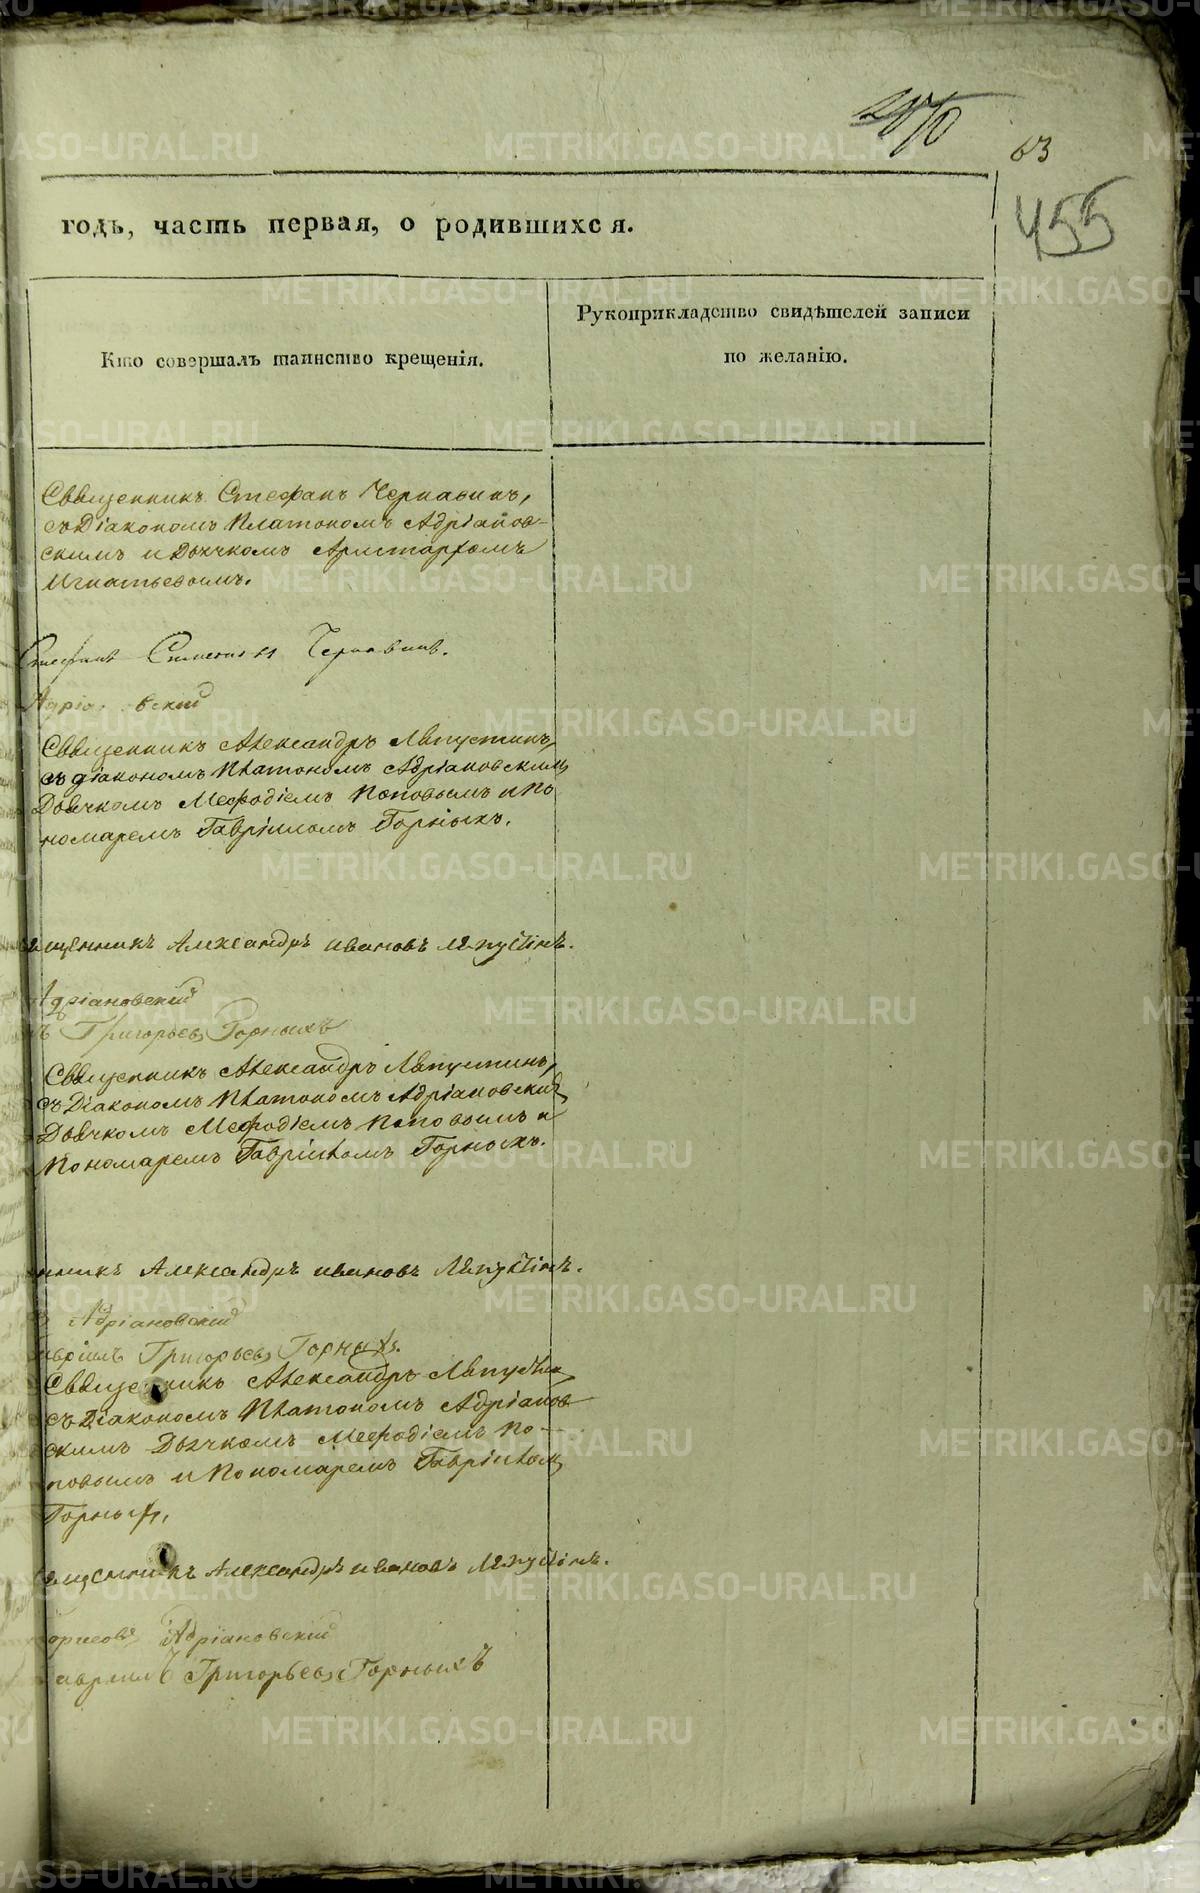 63
455
годъ, часть первая, о родившихся.
Кто совершалъ таинство крещенія.
Рукоприкладство свидѣтелей записи
по желанію.
Священникъ Стефанъ Чернавинъ,
съ Діакономъ Платономъ Адріанов-
скимъ и Дьячкомъ Аристархомъ
Игнатьевымъ.
Стефанъ Чернавинъ.
Священникъ Александръ Ляпустинъ,
съ діакономъ Платономъ Адріановскимъ
Дьячкомъ Мефодіемъ Поповымъ и По
номаремъ Гавріиломъ Горныхъ.
щенникъ Александръ Ивановъ Ляпустінъ.
Адріановскій
ъ Григорьевъ Горныхъ
Священникъ Александръ Ляпустинъ,
съ Діакономъ Платономъ Адріановским
Дьячкомъ Мефодіемъ Поповымъ и
Пономаремъ Гавріиломъ Горныхъ.
нникъ Александръ Ивановъ Ляпустінъ.
Адріановскій
авріилъ Григорьевъ Горныхъ.
Священникъ Александръ Ляпустин
съ Діакономъ Платономъ Адріанов
скимъ Дьячкомъ Мефодіемъ По-
повымъ и Пономаремъ Гавріиломъ
Горныхъ,
ященникъ Александръ Ивановъ Ляпустінъ.
Борисовъ Адріановскій
авриилъ Григорьевъ Горныхъ
METRIKI.GASO-URAL.RU